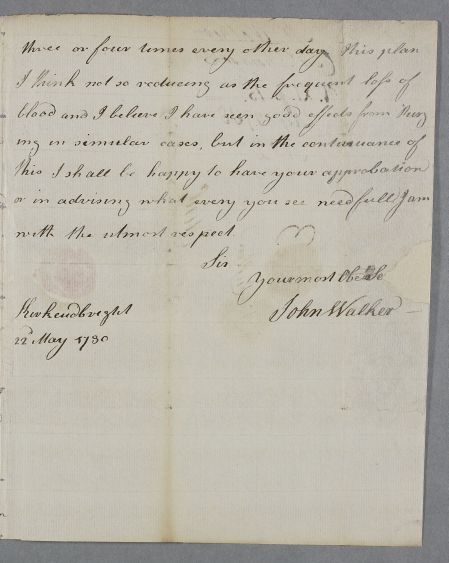 three or four times every other day this plan
I think not so reducing as the frequent loss of
blood and I believe I have seen good effects from
ing in simular cases, but in the continuance of
this I shall be happy to have your approbation
or in advising what every you see needfull I am
with the utmost respect
Sir
Your most
John Walker
Kirkcudbreght
22d May 1780